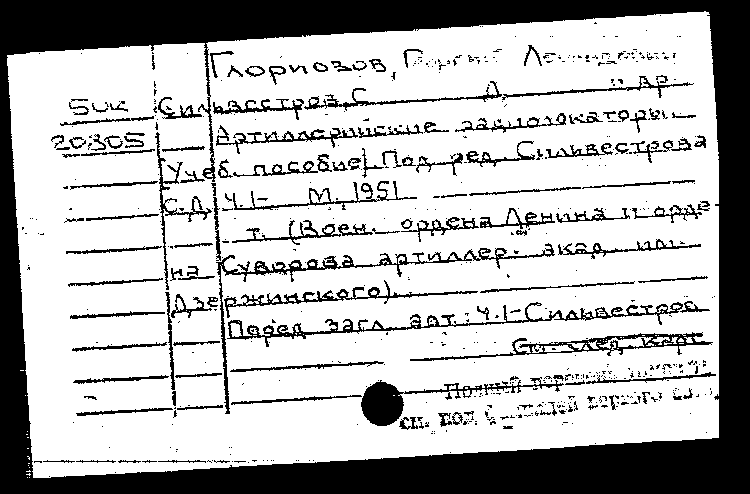 Глориозов, Георгий Леонидович
SUK Сильвестров, С. Д. и др.
20305 Артиллерийские радиолокаторы.
[Учеб. пособие] Под ред. Сильвестрова
С.Д. Ч.1- М., 1951
т. (Воен. ордена Ленина и орде-
на Суворова артиллер. акад. им.
Дзержинского).
Перед загл. авт.: Ч.1-Сильвестров
См. след. карт.
Полный перечень
см. под первого